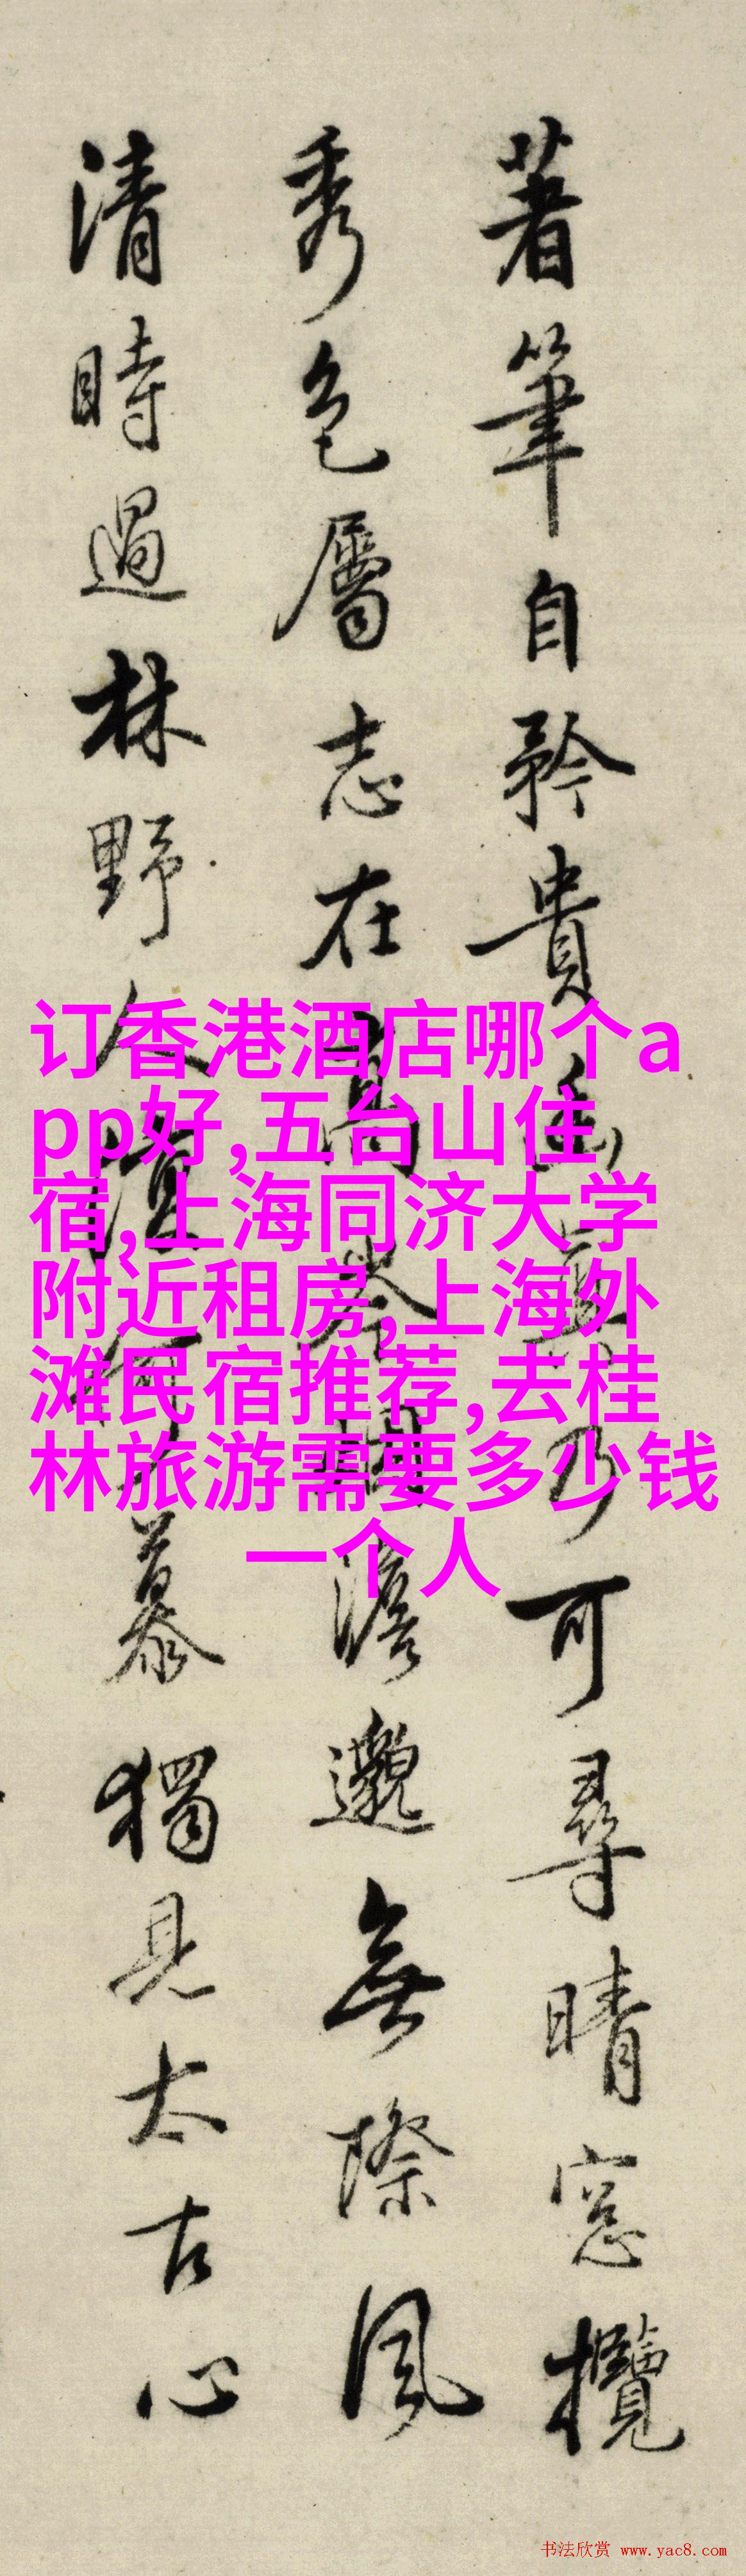 著筆自矜貴幽蘭乃可尋晴窓攬
秀色屬志在高岑相澹邈無際風
清時過林野人澹何慕獨見太古心
订香港酒店哪个a
pp好,五台山住
宿,上海同济大学
附近租房,上海外
滩民宿推荐,去桂
林旅游需要多少钱
一个人
书法欣赏 www.yac8.com